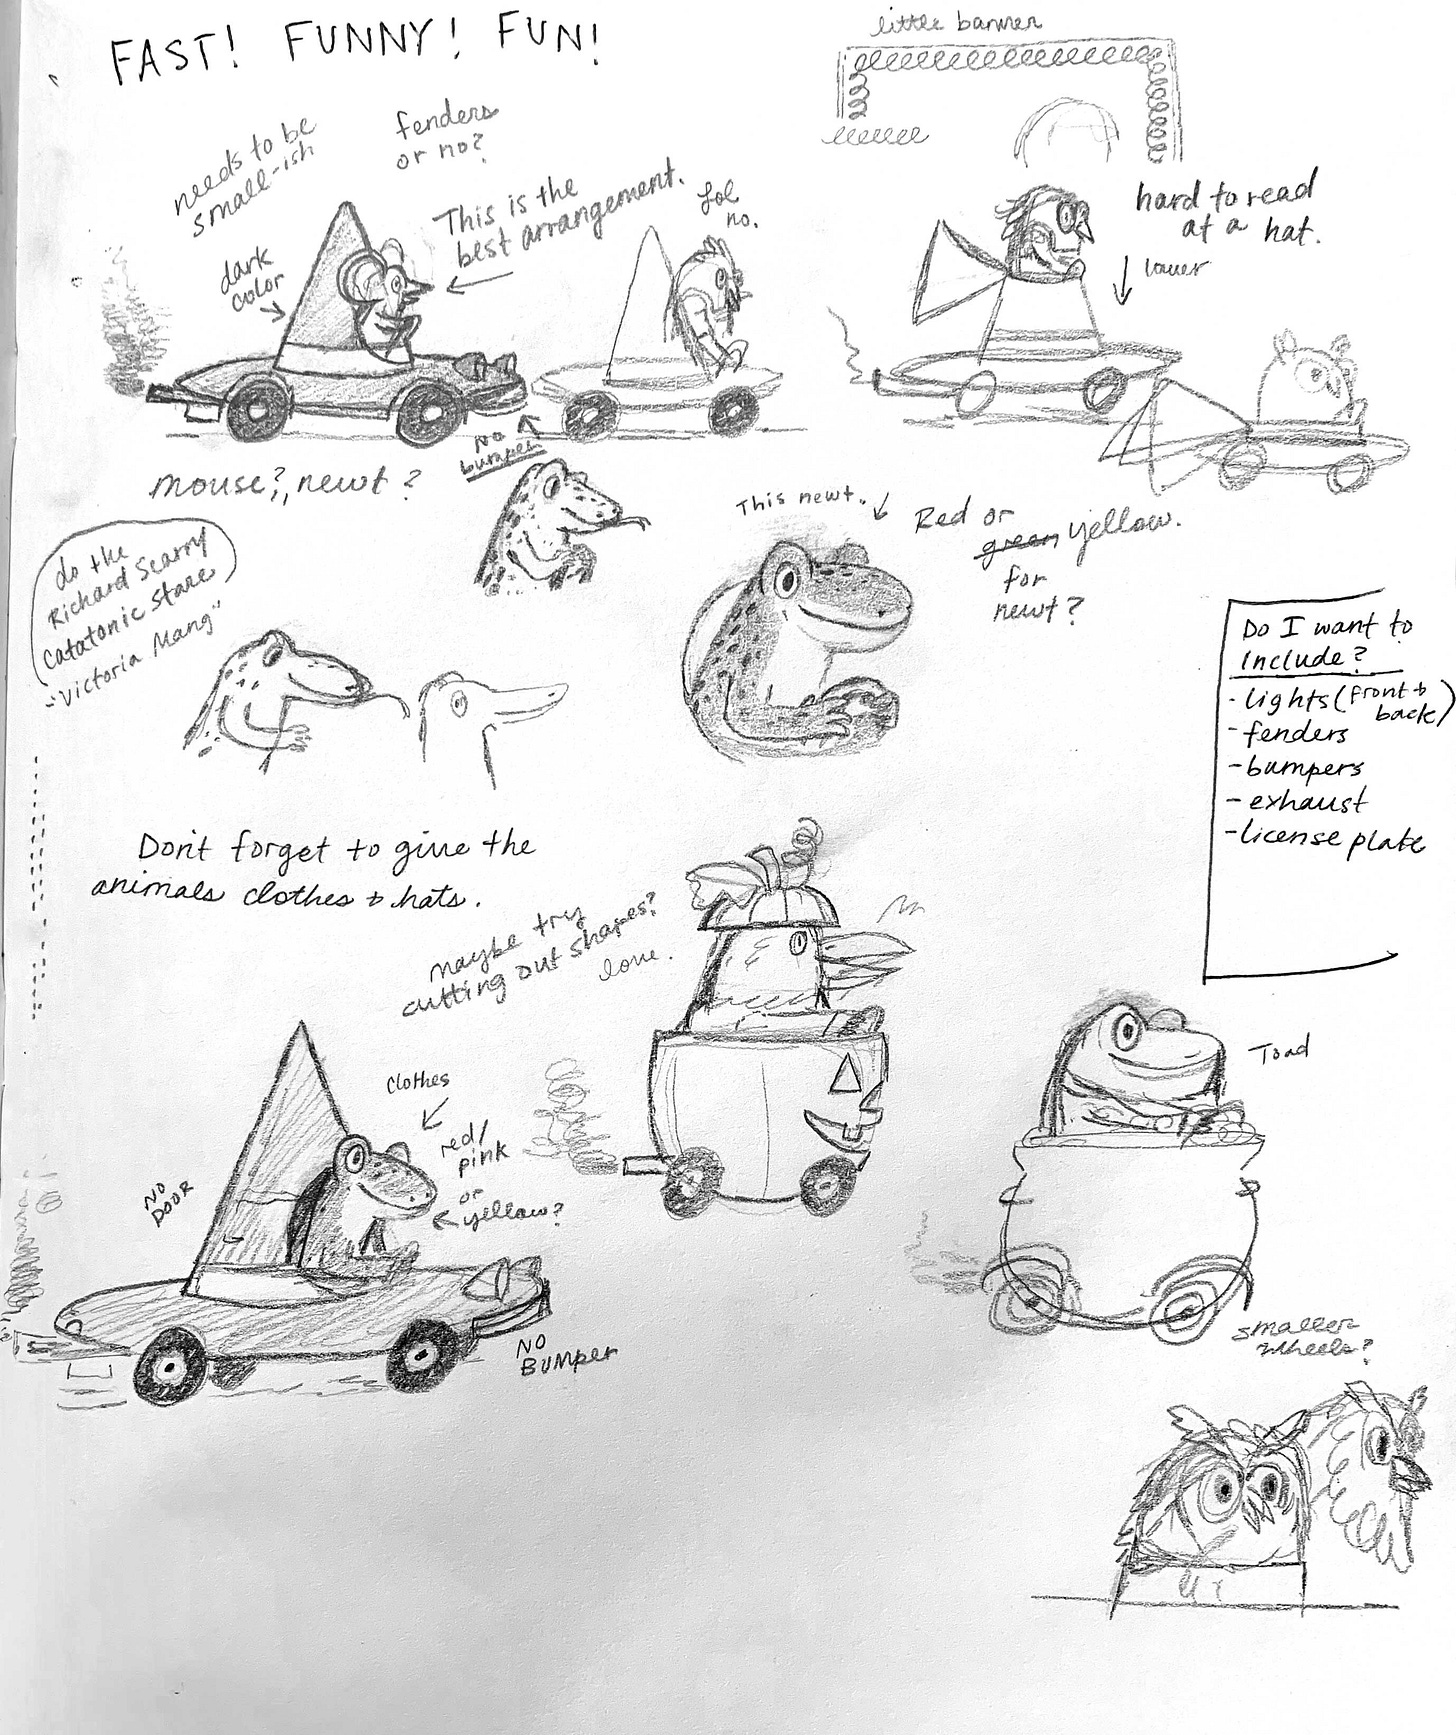 FAST! FUNNY! FUN!
little banner
needs to be
small-ish
fenders
or no?
This is the
best arrangement.
Lol
no.
hard to read
at a hat.
lower
dark
color
NO
bumper
mouse?, newt?
This newt.
Red or
green yellow.
for
newt?
do the
Richard Scarry
Catatonic Stare
"Victoria Mang"
Do I want to
include?
- lights (front +
back)
- fenders
- bumpers
- exhaust
- license plate
Don't forget to give the
animals clothes + hats.
maybe try
cutting out shapes?
love.
Toad
clothes
red/
pink
or
yellow?
NO
DOOR
NO
BUMPER
smaller
wheels?